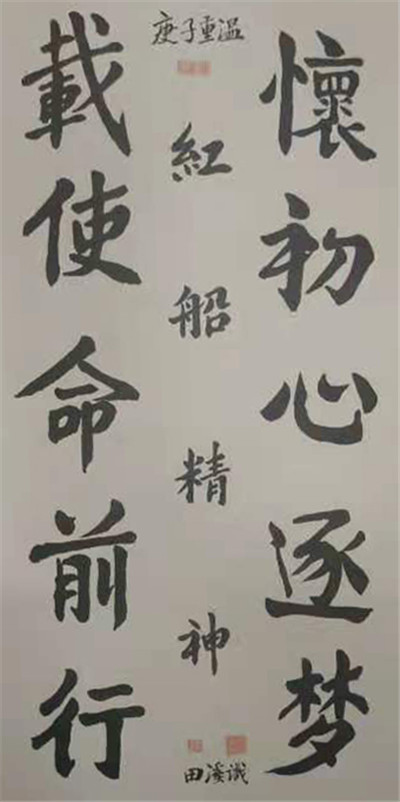 懷初心逐梦
庚子重温
紅船精神
田溪识
載使命前行